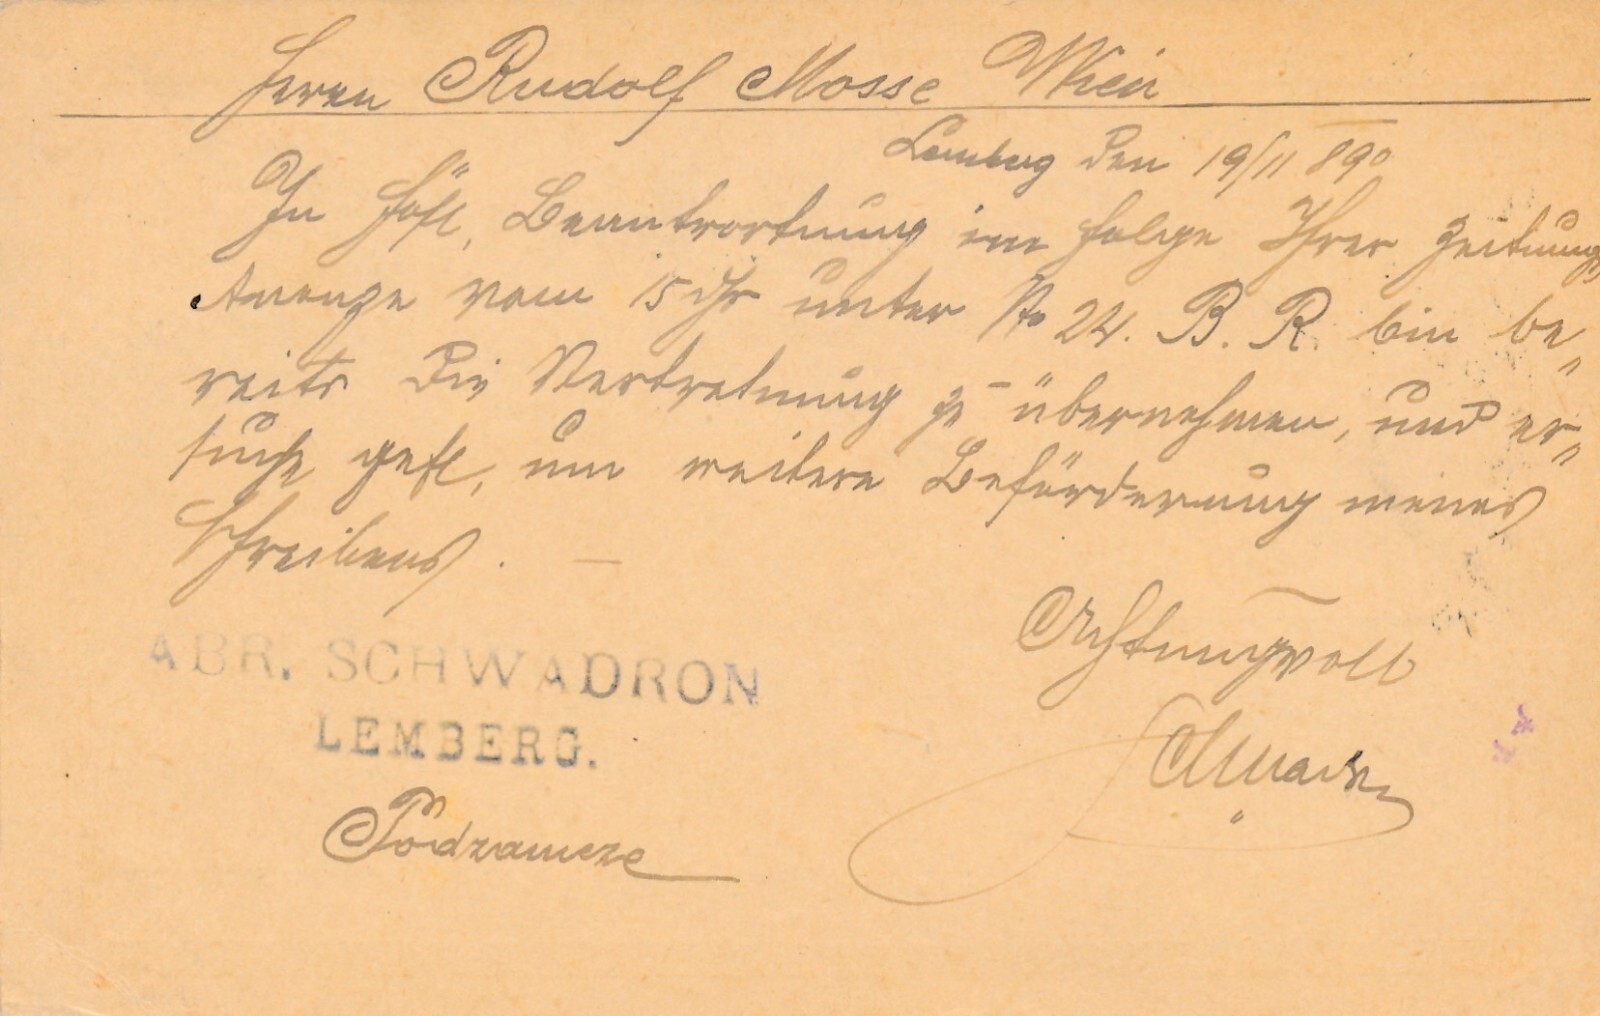 Herrn Rudolf Mosse Wien
Lemberg den 19/11 890
In höfl, Beantwortung im folge Ihrer Zeitungs
Anonze vom 15 dſs unter No 24. B. R. bin be„
reits die Vertretung zu übernehmen, und er„
suche gefl, um weitere Beförderung meines
Schreibens. —
Achtungsvoll
ABR. SCHWADRON
LEMBERG.
Schwadron
Podzamcze